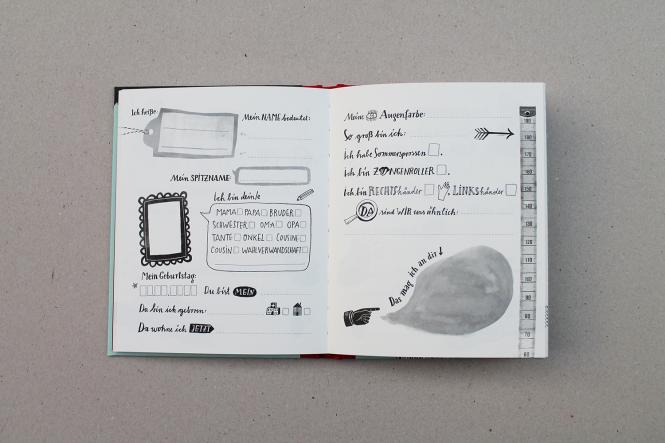 Ich heiße:
Mein NAME bedeutet:
Mein SPITZNAME:
Ich bin dein/e
MAMA PAPA BRUDER
SCHWESTER OMA OPA
TANTE ONKEL COUSINE
COUSIN WAHLVERWANDSCHAFT
Mein Geburtstag:
Du bist MEIN
Da bin ich geboren:
Da wohne ich JETZT
Meine Augenfarbe:
So groß bin ich:
Ich habe Sommersprossen
Ich bin ZUNGENROLLER
Ich bin RECHTShänder LINKShänder
DA sind WIR uns ähnlich:
Das mag ich an dir
190
180
170
160
150
140
130
120
110
100
90
80
70
60